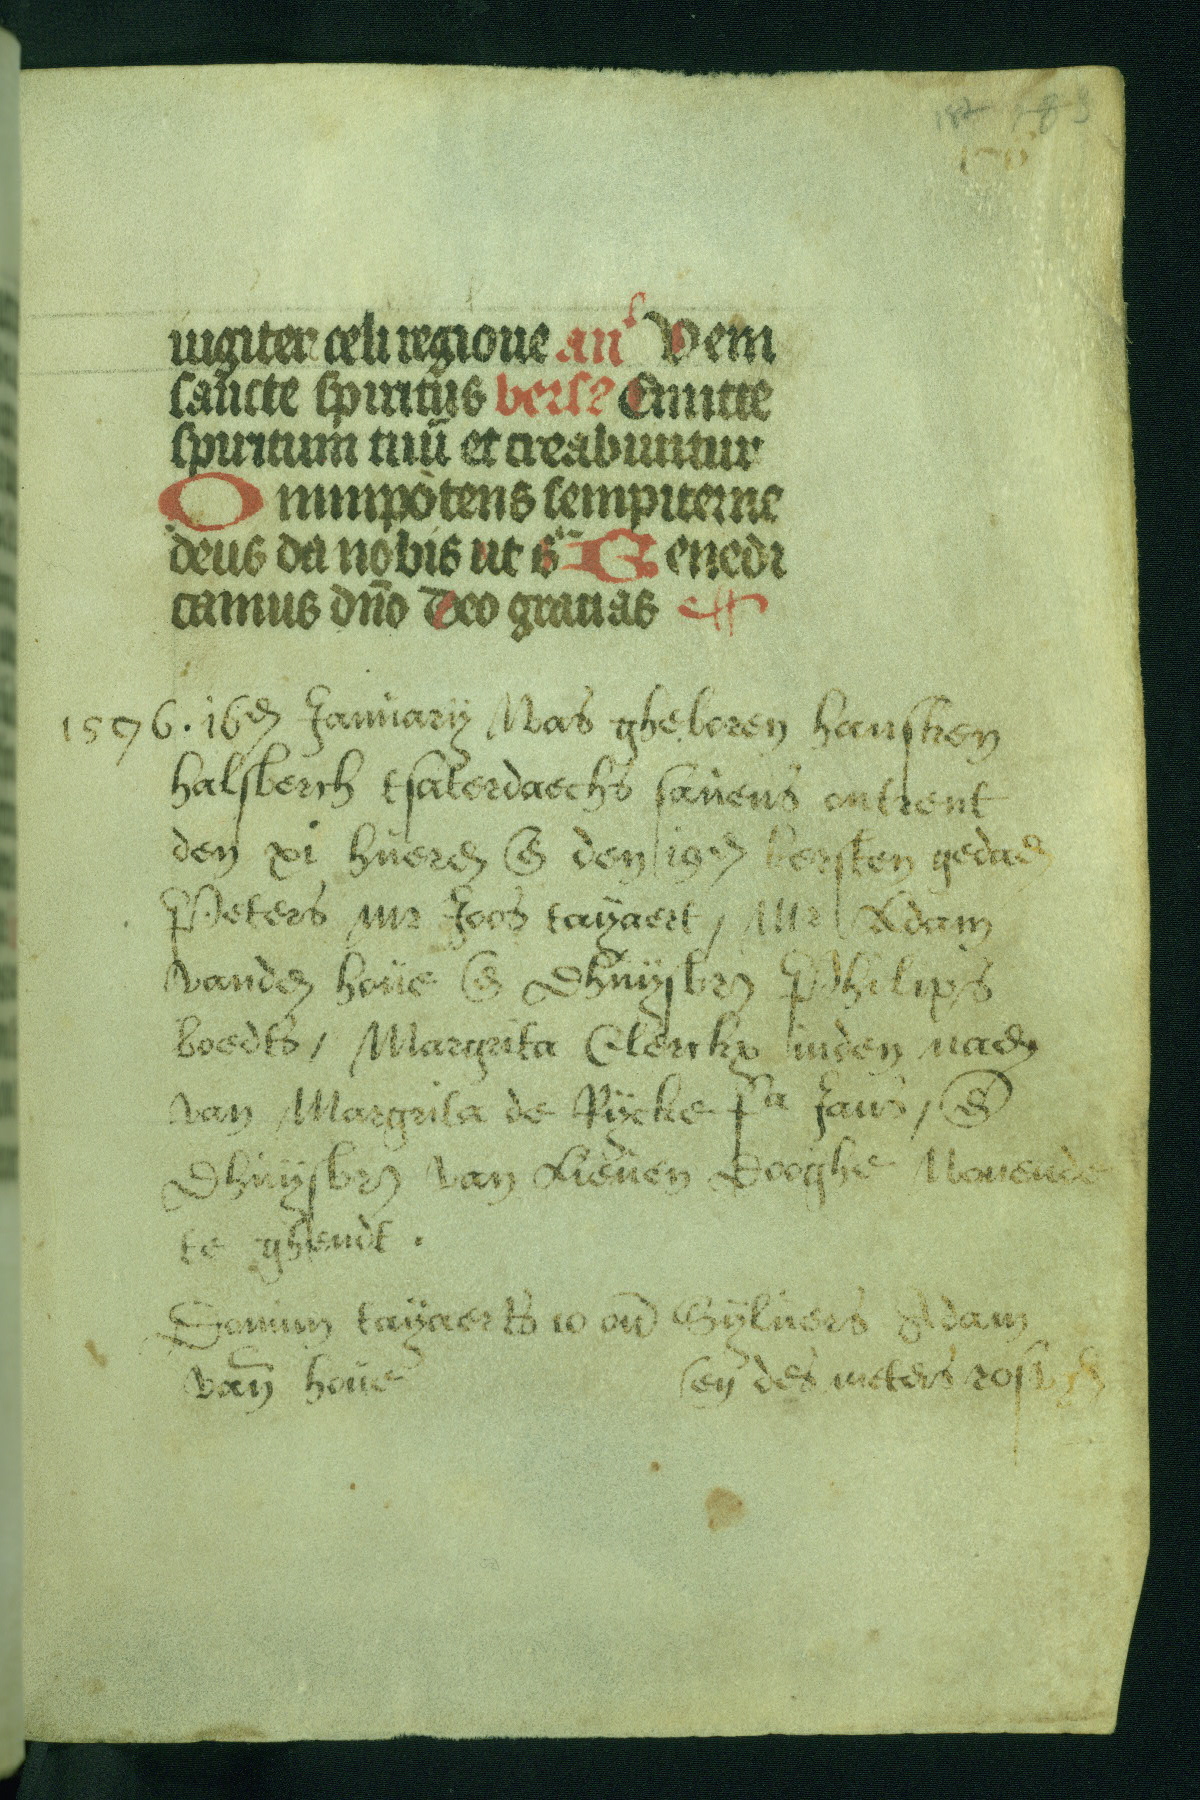 183
iugiter celi regione an͛ Veni
sancte spiritus verse Emitte
spiritum tuū et creabuntur
Omnipotens sempiterne
deus da nobis ut s Benedi
camus dño Deo gratias
1576 . 16en January Was gheboren hansken
halsberch tsaterdaechs savens ontrent
den xi hueren en den 19en kersten gedaen
Peters mr Joos tayaert / Mr Adam
vanden houe en Dhuysvr Philips
boedts / Margrita Clerckx inden naem
van Margrita de Rycke fa Jans / en
Dhuysvr van Lieuen Dooghe Wonende
te ghendt .
tayaerts 10 Sylvers Adam
van houe en des meters